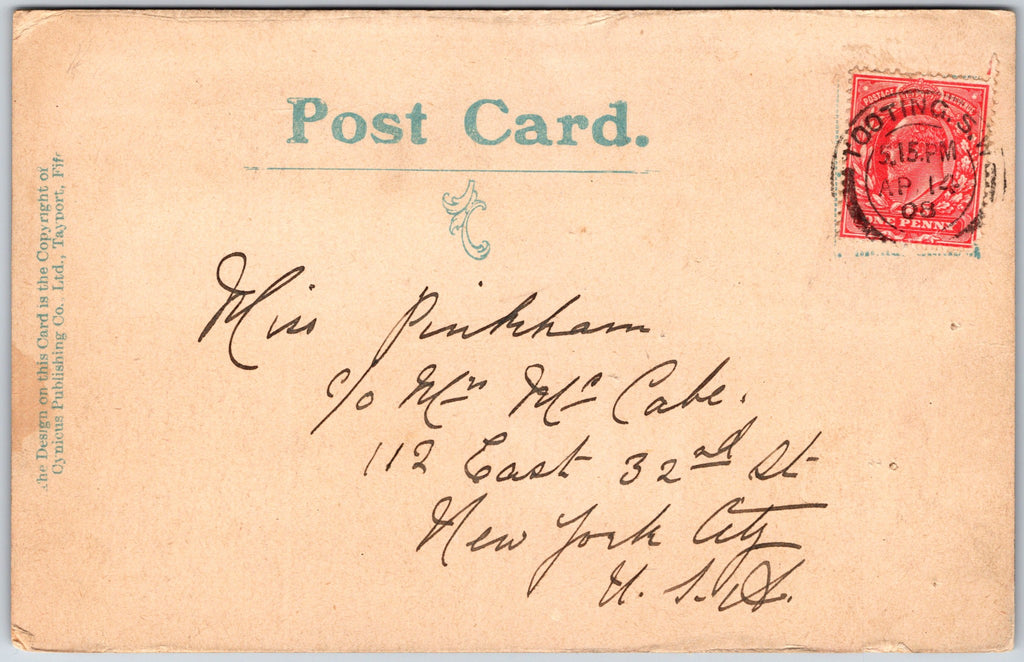 Post Card.
POSTAGE
TOOTING. S.W
5.15.PM
AP 14
ONE PENNY
Miss Pinkham
c/o Mrs Mc Cabe.
112 East 32nd St
New York City
U. S. A.
he Design on this Card is the Copyright of
Cynicus Publishing Co. Ltd., Tayport, Fife